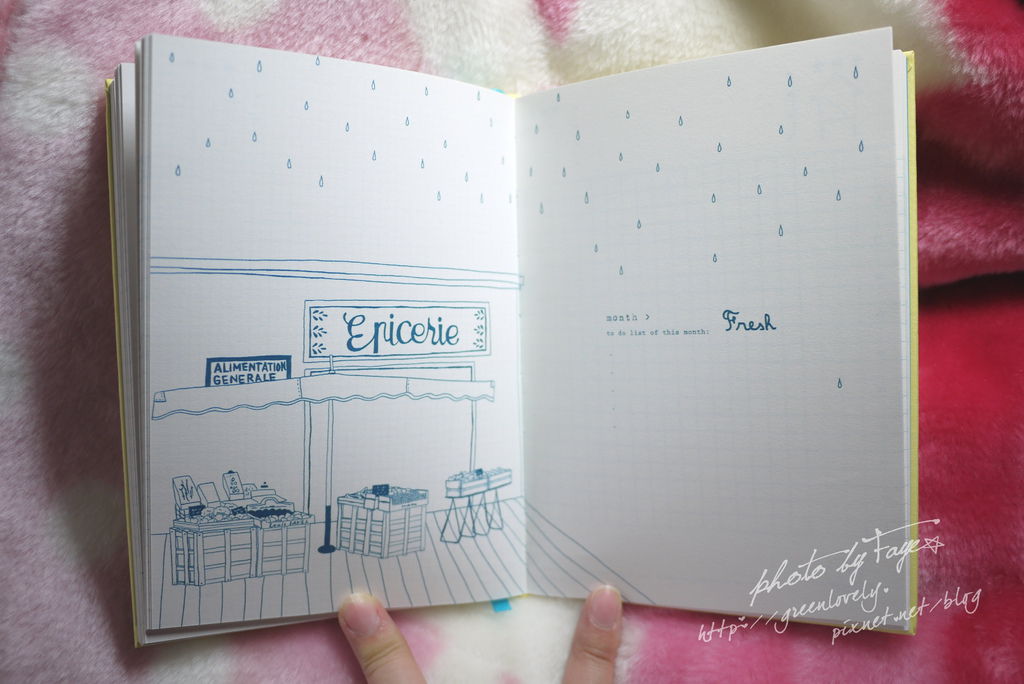 Epicerie
ALIMENTATION
GENERALE
month >
to do list of this month:
Fresh
photo by Faye
http://greenlovely.
pixnet.net/blog